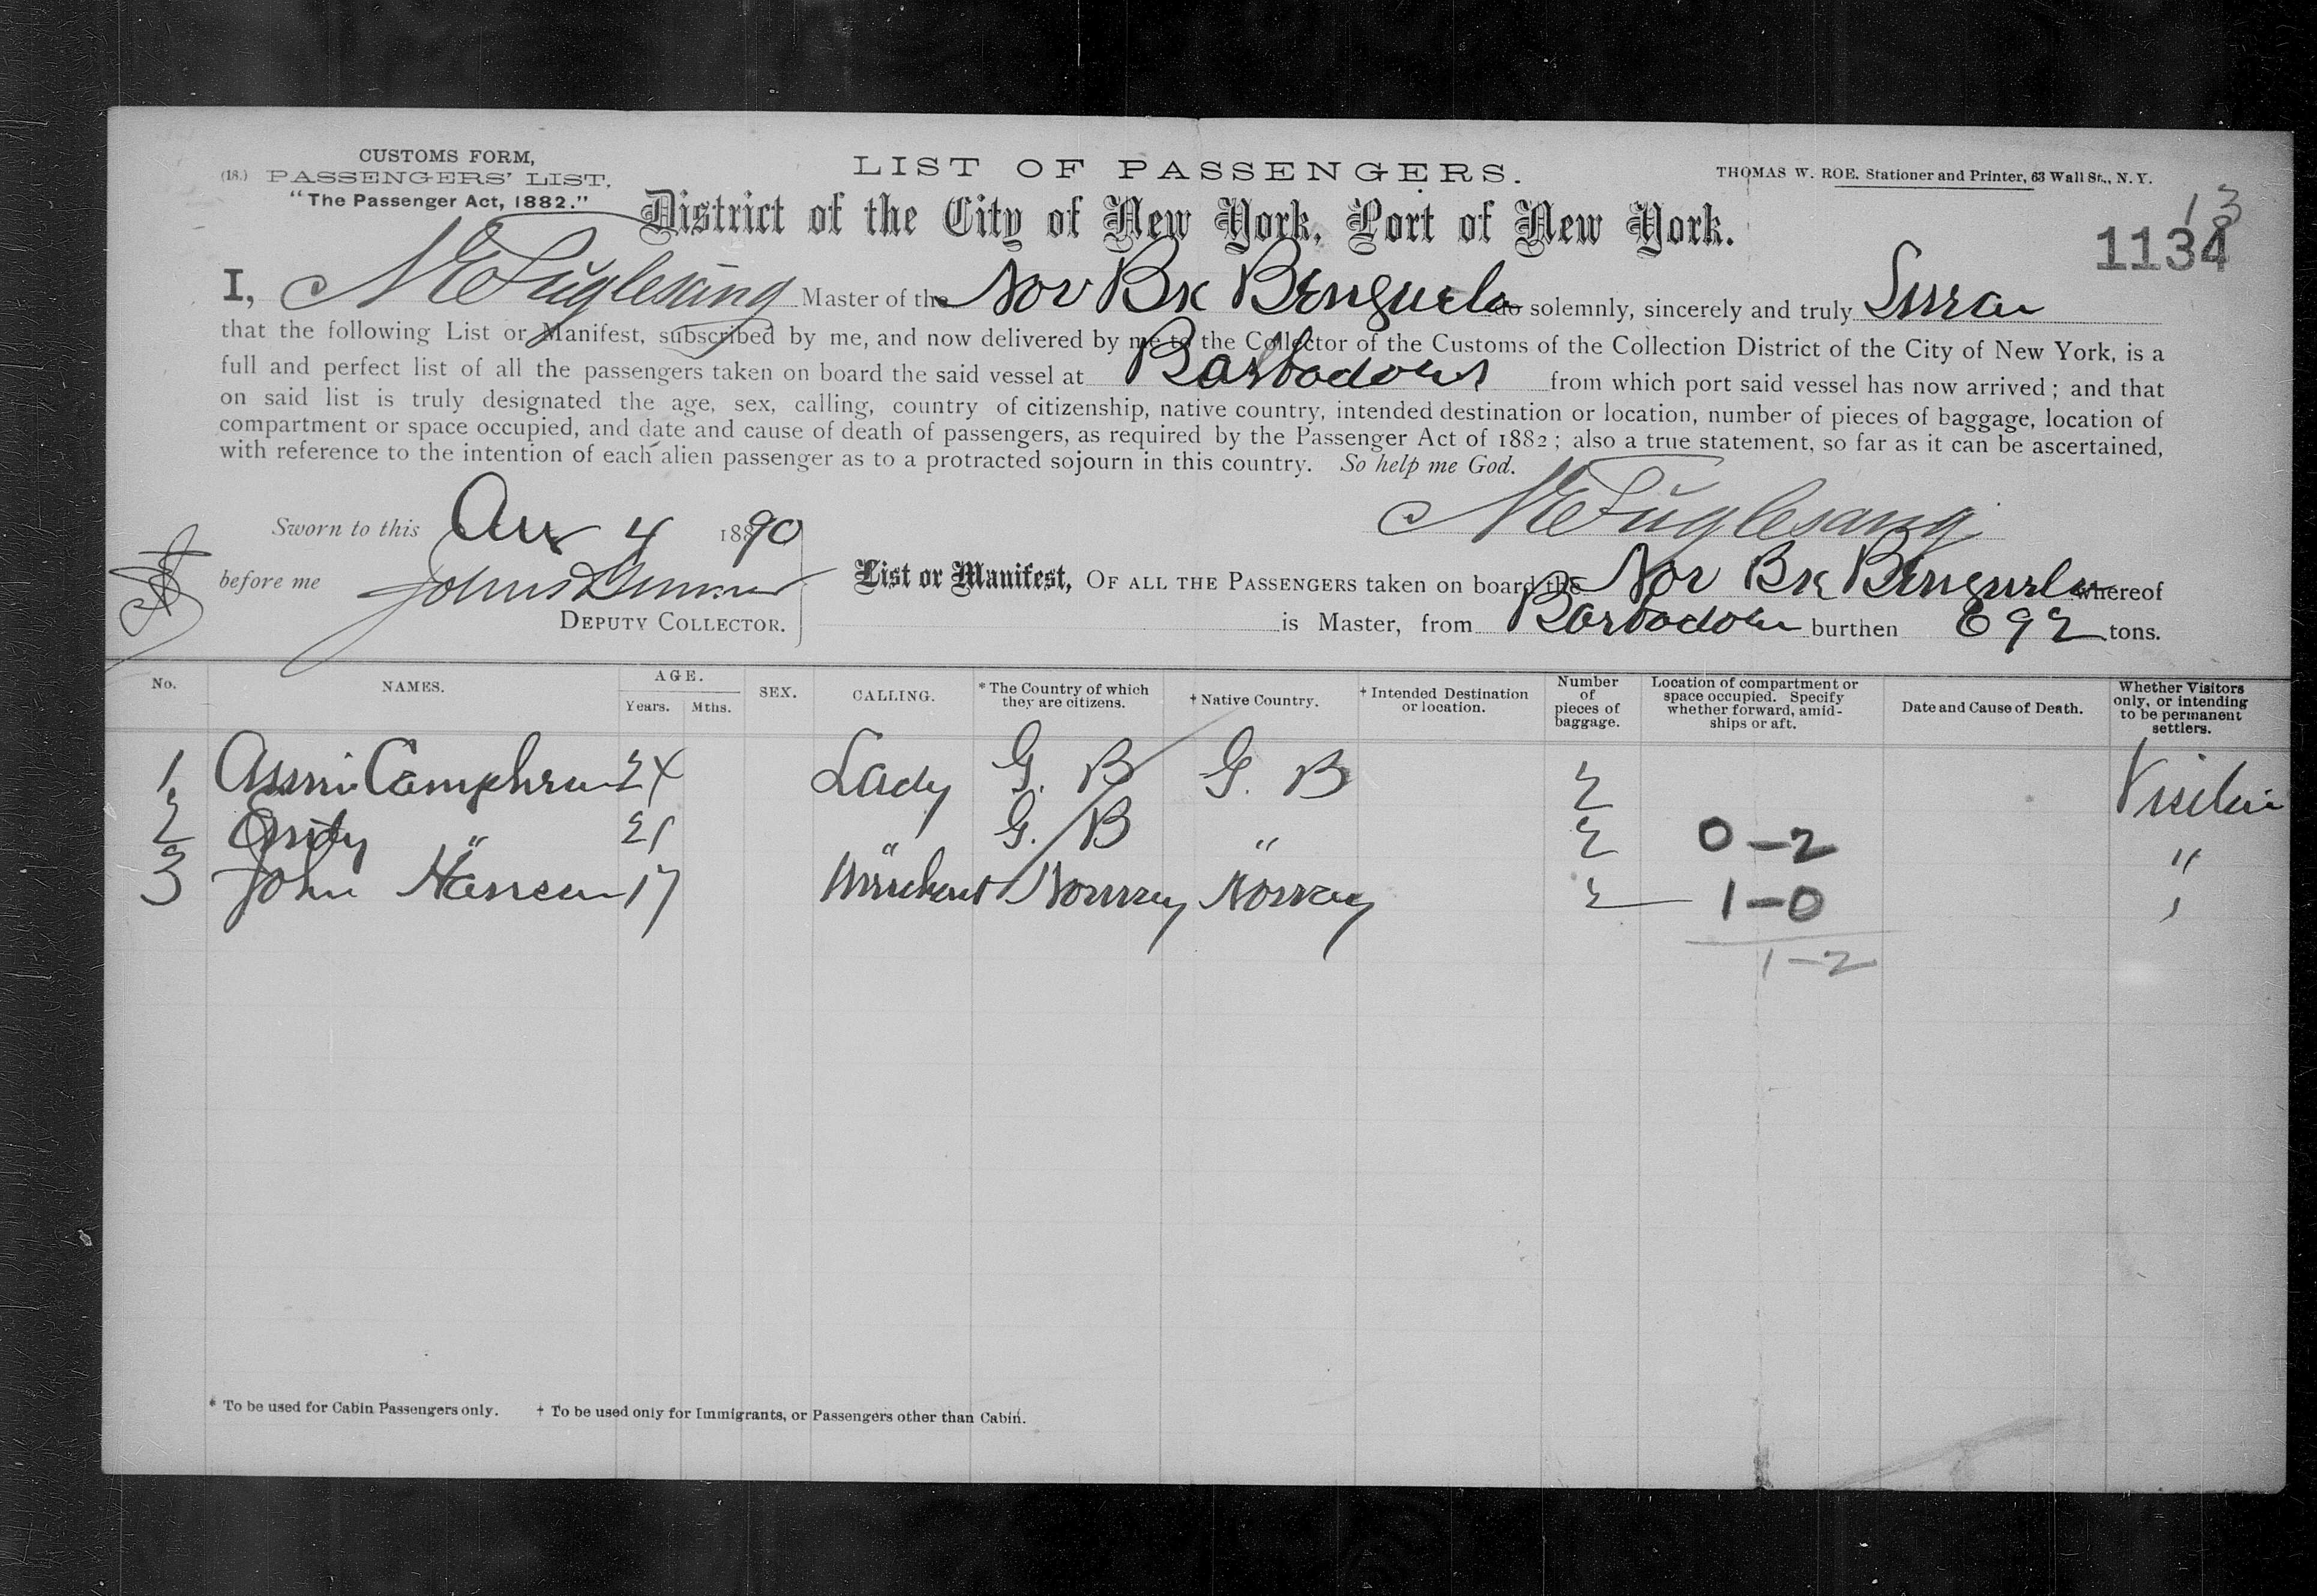 CUSTOMS FORM,
(18.) PASSENGERS' LIST.
"The Passenger Act, 1882."
LIST OF PASSENGERS.
THOMAS W. ROE. Stationer and Printer, 63 Wall St., N. Y.
District of the City of New York, Port of New York.
13
1134
I, Fuglesang Master of the Nor Bk Benguela do solemnly, sincerely and truly Swear
that the following List or Manifest, subscribed by me, and now delivered by me to the Collector of the Customs of the Collection District of the City of New York, is a
full and perfect list of all the passengers taken on board the said vessel at Barbadoes from which port said vessel has now arrived; and that
on said list is truly designated the age, sex, calling, country of citizenship, native country, intended destination or location, number of pieces of baggage, location of
compartment or space occupied, and date and cause of death of passengers, as required by the Passenger Act of 1882; also a true statement, so far as it can be ascertained,
with reference to the intention of each alien passenger as to a protracted sojourn in this country. So help me God.
Fuglesang
Sworn to this 4 1890
before me
DEPUTY COLLECTOR.
List or Manifest, OF ALL THE PASSENGERS taken on board the Nor Bk Benguela whereof
is Master, from Barbadoes burthen 692 tons.
No. NAMES. AGE. Years. Mths. SEX. CALLING. * The Country of which they are citizens. † Native Country. † Intended Destination or location. Number of pieces of baggage. Location of compartment or space occupied. Specify whether forward, amidships or aft. Date and Cause of Death. Whether Visitors only, or intending to be permanent settlers.
1 24 Lady G. B G. B 2
2 " 21 " G. B " 2 0-2 "
3 John Hansen 17 Norway Norway 2 1-0 "
1-2
* To be used for Cabin Passengers only. † To be used only for Immigrants, or Passengers other than Cabin.